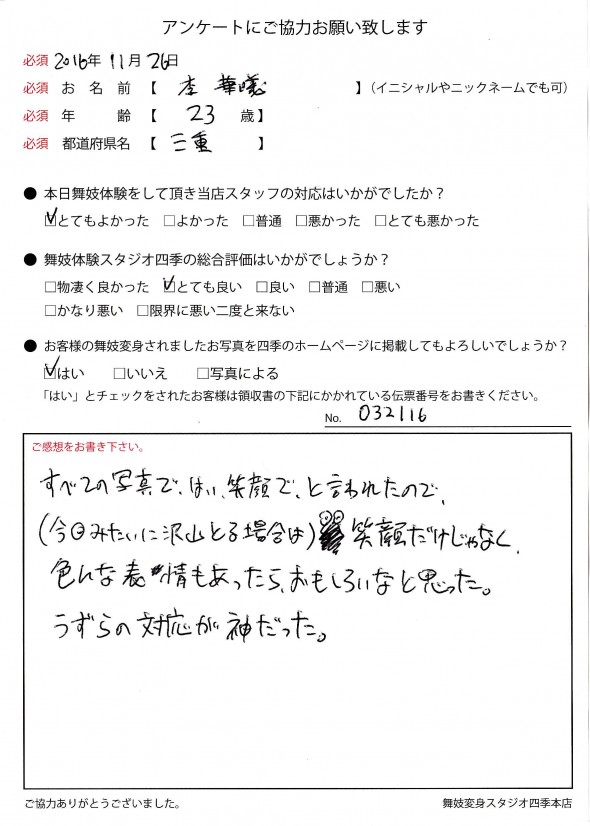 アンケートにご協力お願い致します
必須 2016年 11月 26日
必須 お名前 【 李 華曦 】（イニシャルやニックネームでも可）
必須 年齢 【 23 歳】
必須 都道府県名 【 三重 】
● 本日舞妓体験をして頂き当店スタッフの対応はいかがでしたか？
☑とてもよかった □よかった □普通 □悪かった □とても悪かった
● 舞妓体験スタジオ四季の総合評価はいかがでしょうか？
□物凄く良かった ☑とても良い □良い □普通 □悪い
□かなり悪い □限界に悪い二度と来ない
● お客様の舞妓変身されましたお写真を四季のホームページに掲載してもよろしいでしょうか？
☑はい □いいえ □写真による
「はい」とチェックをされたお客様は領収書の下記にかかれている伝票番号をお書きください。
No. 032116
ご感想をお書き下さい。
すべての写真で、はい、笑顔で、と言われたので、
(今日みたいに沢山とる場合は) 笑顔だけじゃなく、
色んな表情もあったら、おもしろいなと思った。
うずらの対応が神だった。
ご協力ありがとうございました。
舞妓変身スタジオ四季本店